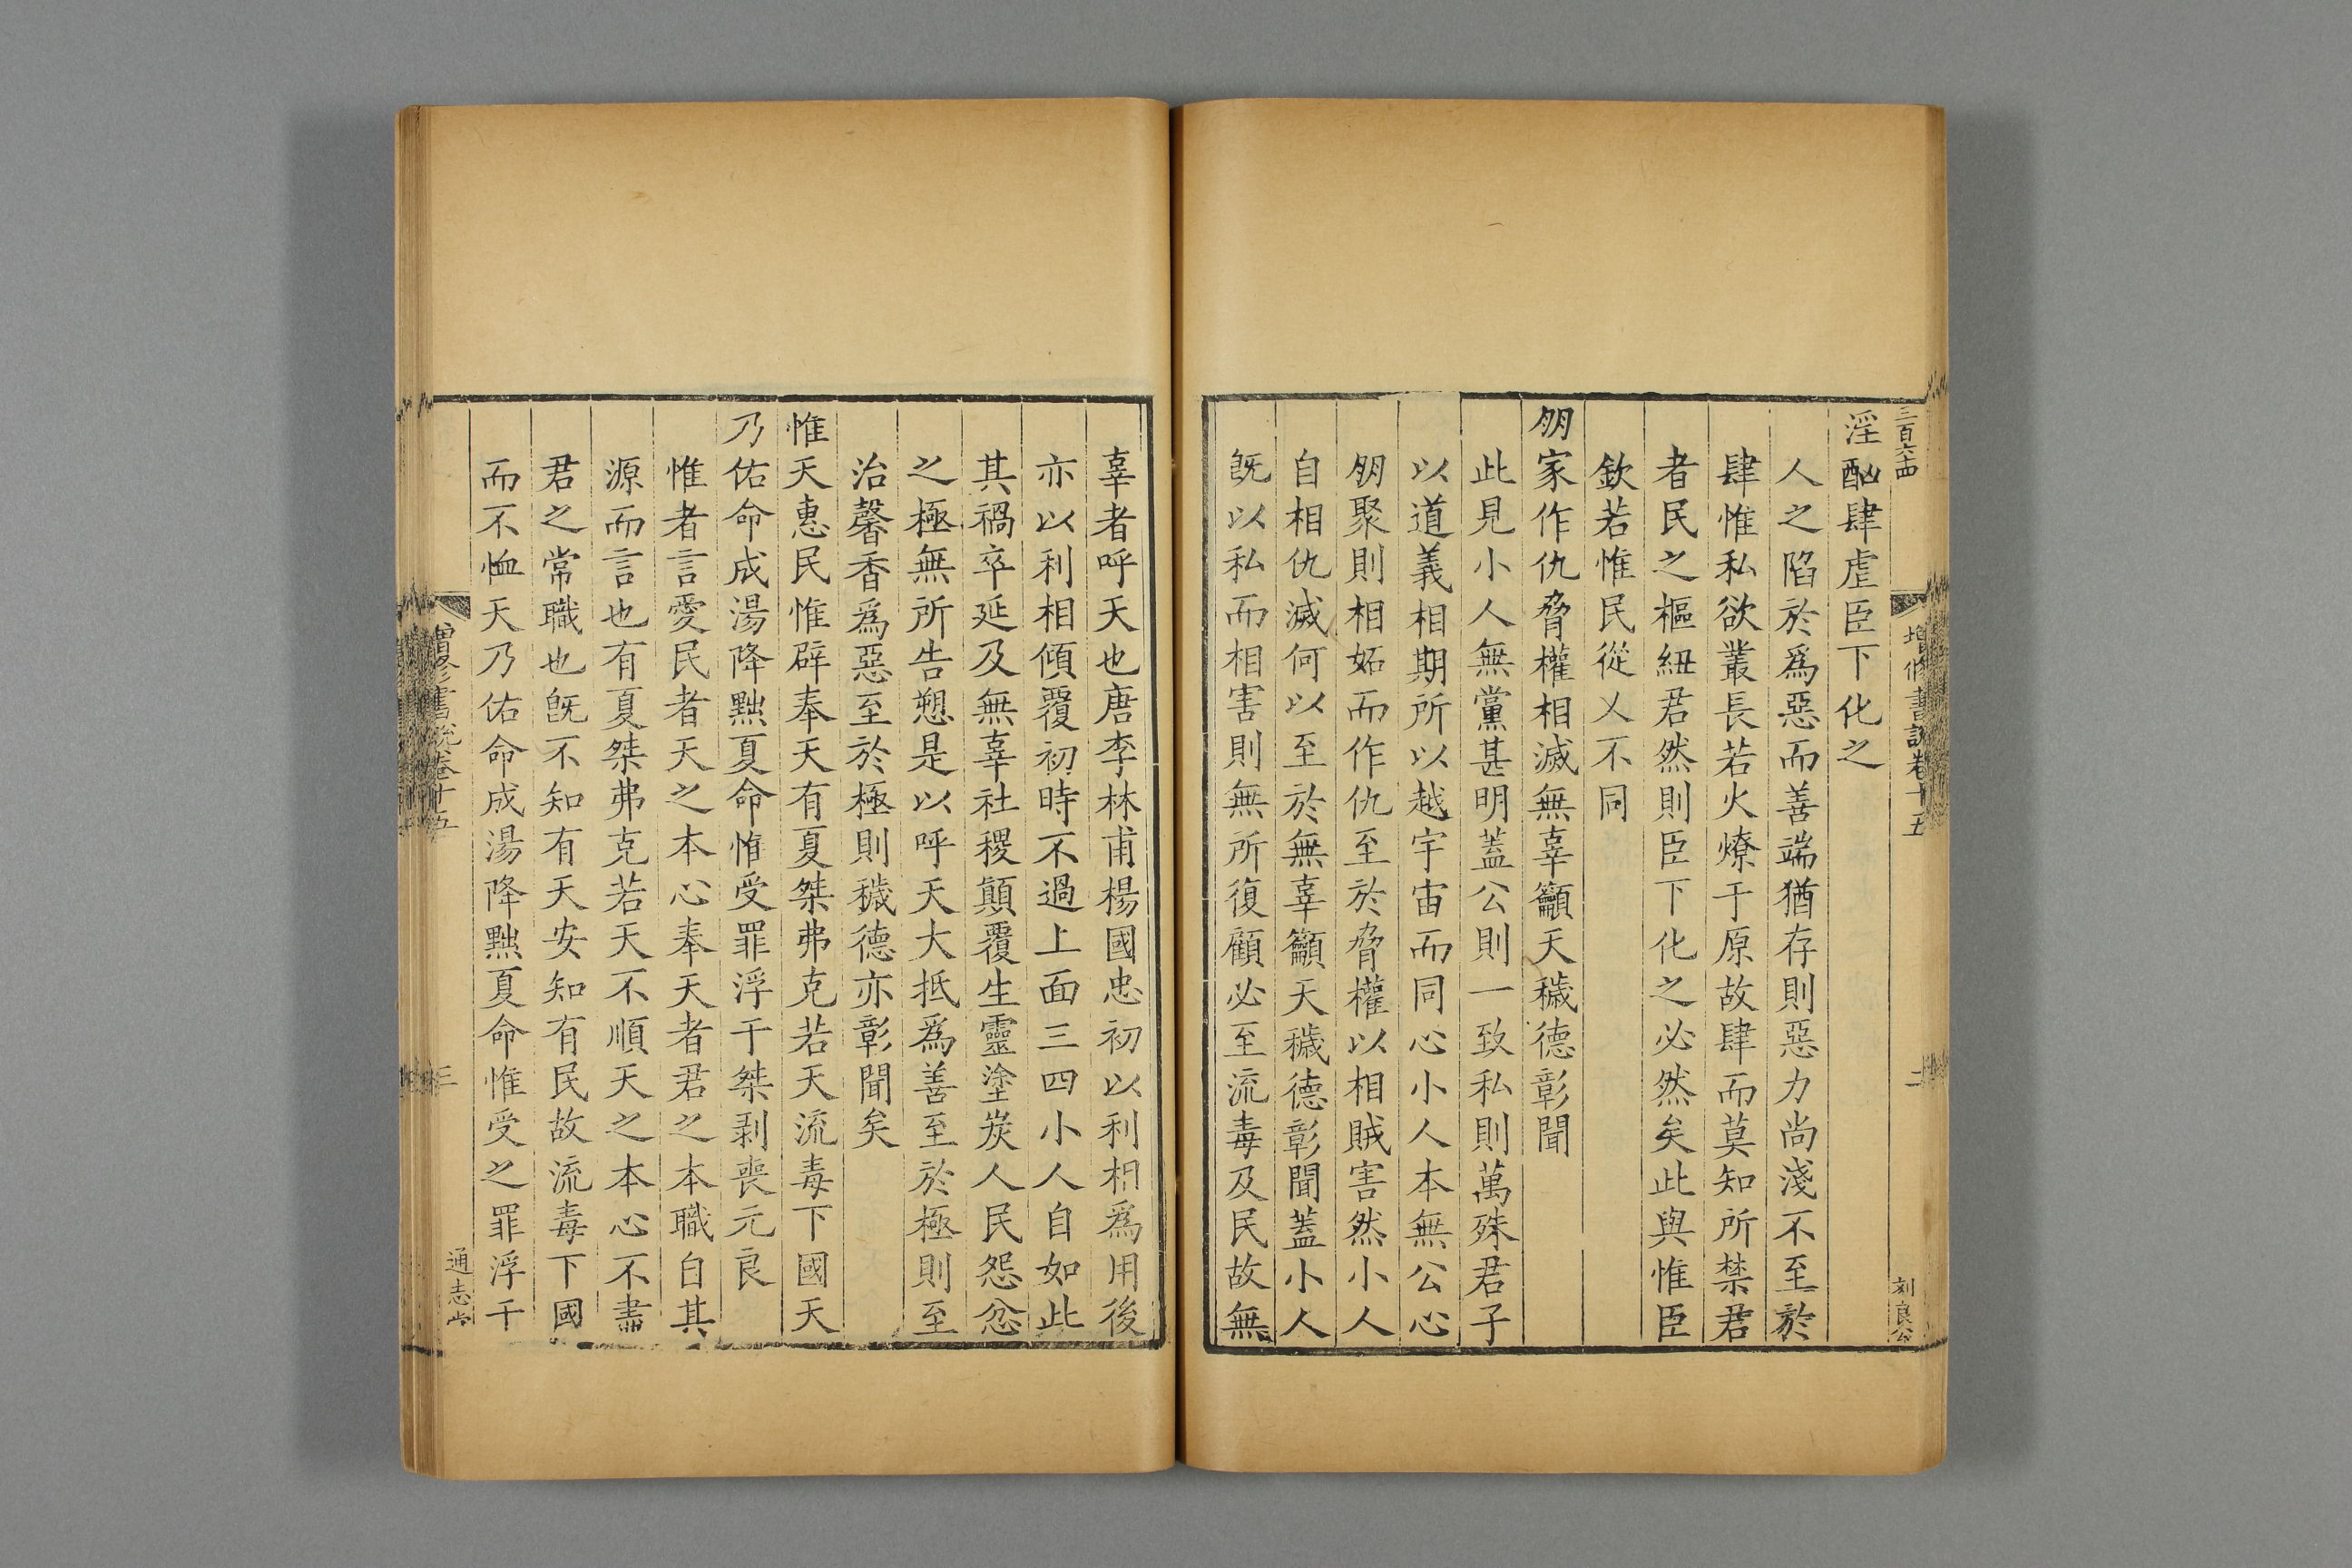 三百六十四
增修書說卷十五
二
刘良公
淫酗肆虐臣下化之
人之陷於爲惡而善端猶存則惡力尚淺不至於
肆惟私欲叢長若火燎于原故肆而莫知所禁君
者民之樞紐君然則臣下化之必然矣此與惟臣
欽若惟民從乂不同
朋家作仇脅權相滅無辜籲天穢德彰聞
此見小人無黨甚明蓋公則一致私則萬殊君子
以道義相期所以越宇宙而同心小人本無公心
朋聚則相妬而作仇至於脅權以相賊害然小人
自相仇滅何以至於無辜籲天穢德彰聞蓋小人
旣以私而相害則無所復顧必至流毒及民故無
辜者呼天也唐李林甫楊國忠初以利相爲用後
亦以利相傾覆初時不過上面三四小人自如此
其禍卒延及無辜社稷顛覆生靈塗炭人民怨忿
之極無所告愬是以呼天大抵爲善至於極則至
治馨香爲惡至於極則穢德亦彰聞矣
惟天惠民惟辟奉天有夏桀弗克若天流毒下國天
乃佑命成湯降黜夏命惟受罪浮于桀剥喪元良
惟者言愛民者天之本心奉天者君之本職自其
源而言也有夏桀弗克若天不順天之本心不盡
君之常職也旣不知有天安知有民故流毒下國
而不恤天乃佑命成湯降黜夏命惟受之罪浮于
增修書說卷十五
三
通志